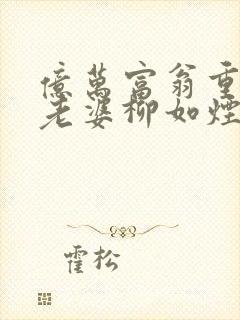 億萬富翁重
老婆柳如煙
霍松